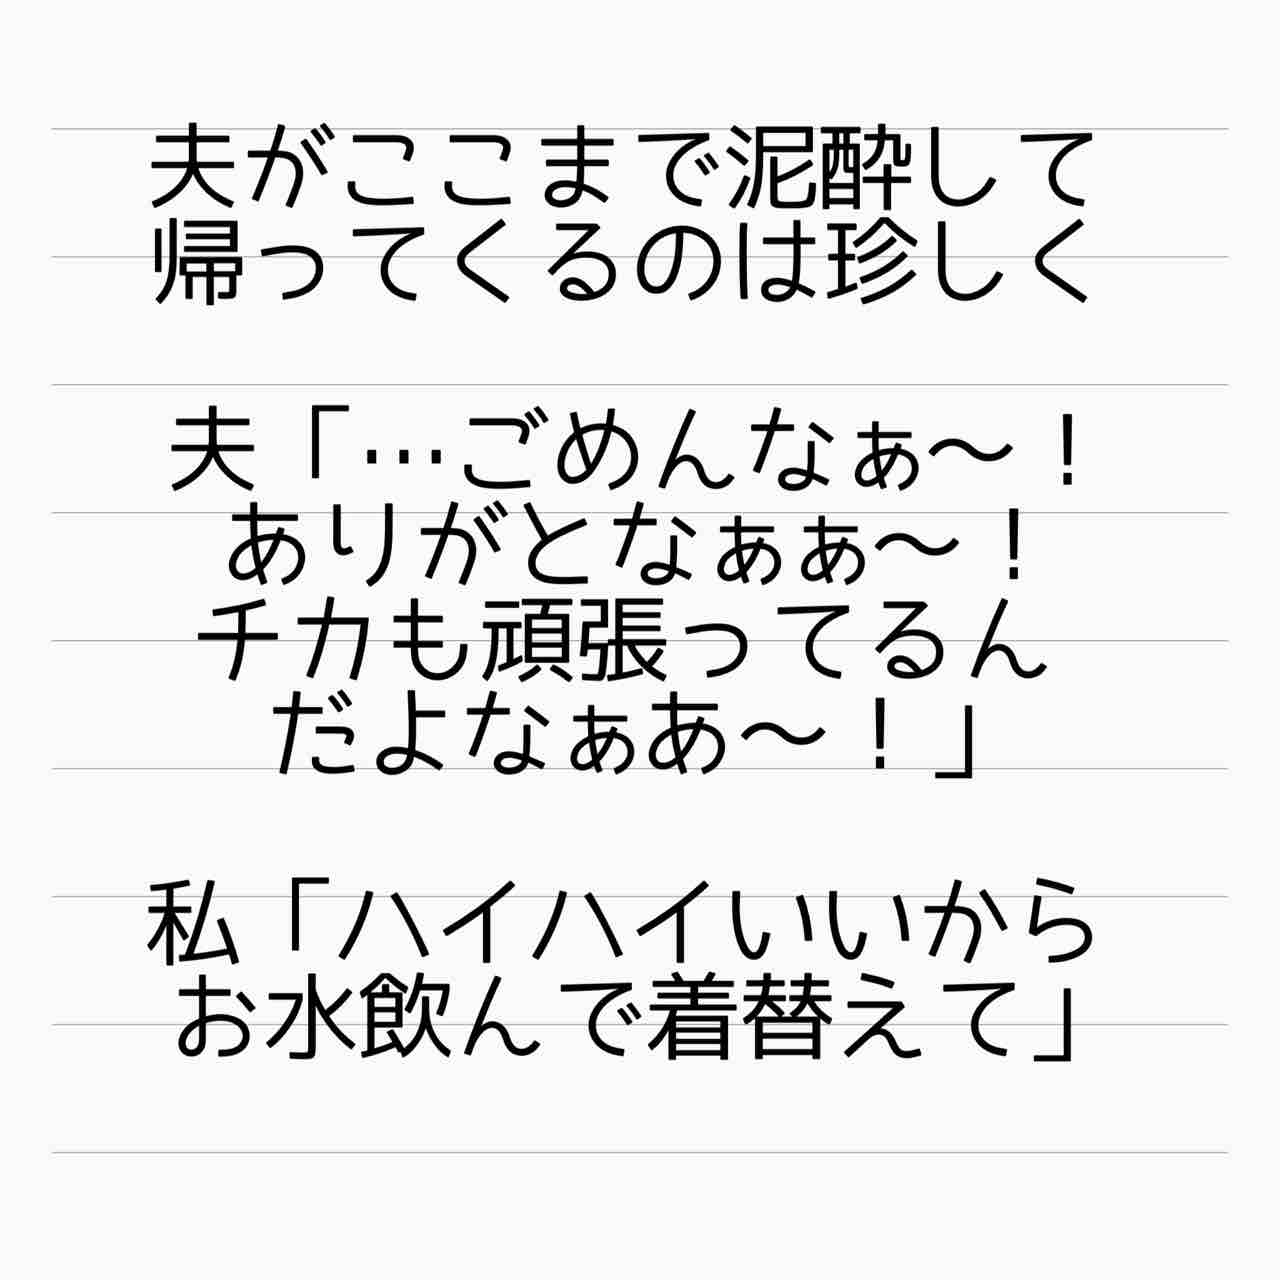 夫がここまで泥酔して
帰ってくるのは珍しく
夫「…ごめんなぁ〜！
ありがとなぁぁ〜！
チカも頑張ってるん
だよなぁあ〜！」
私「ハイハイいいから
お水飲んで着替えて」